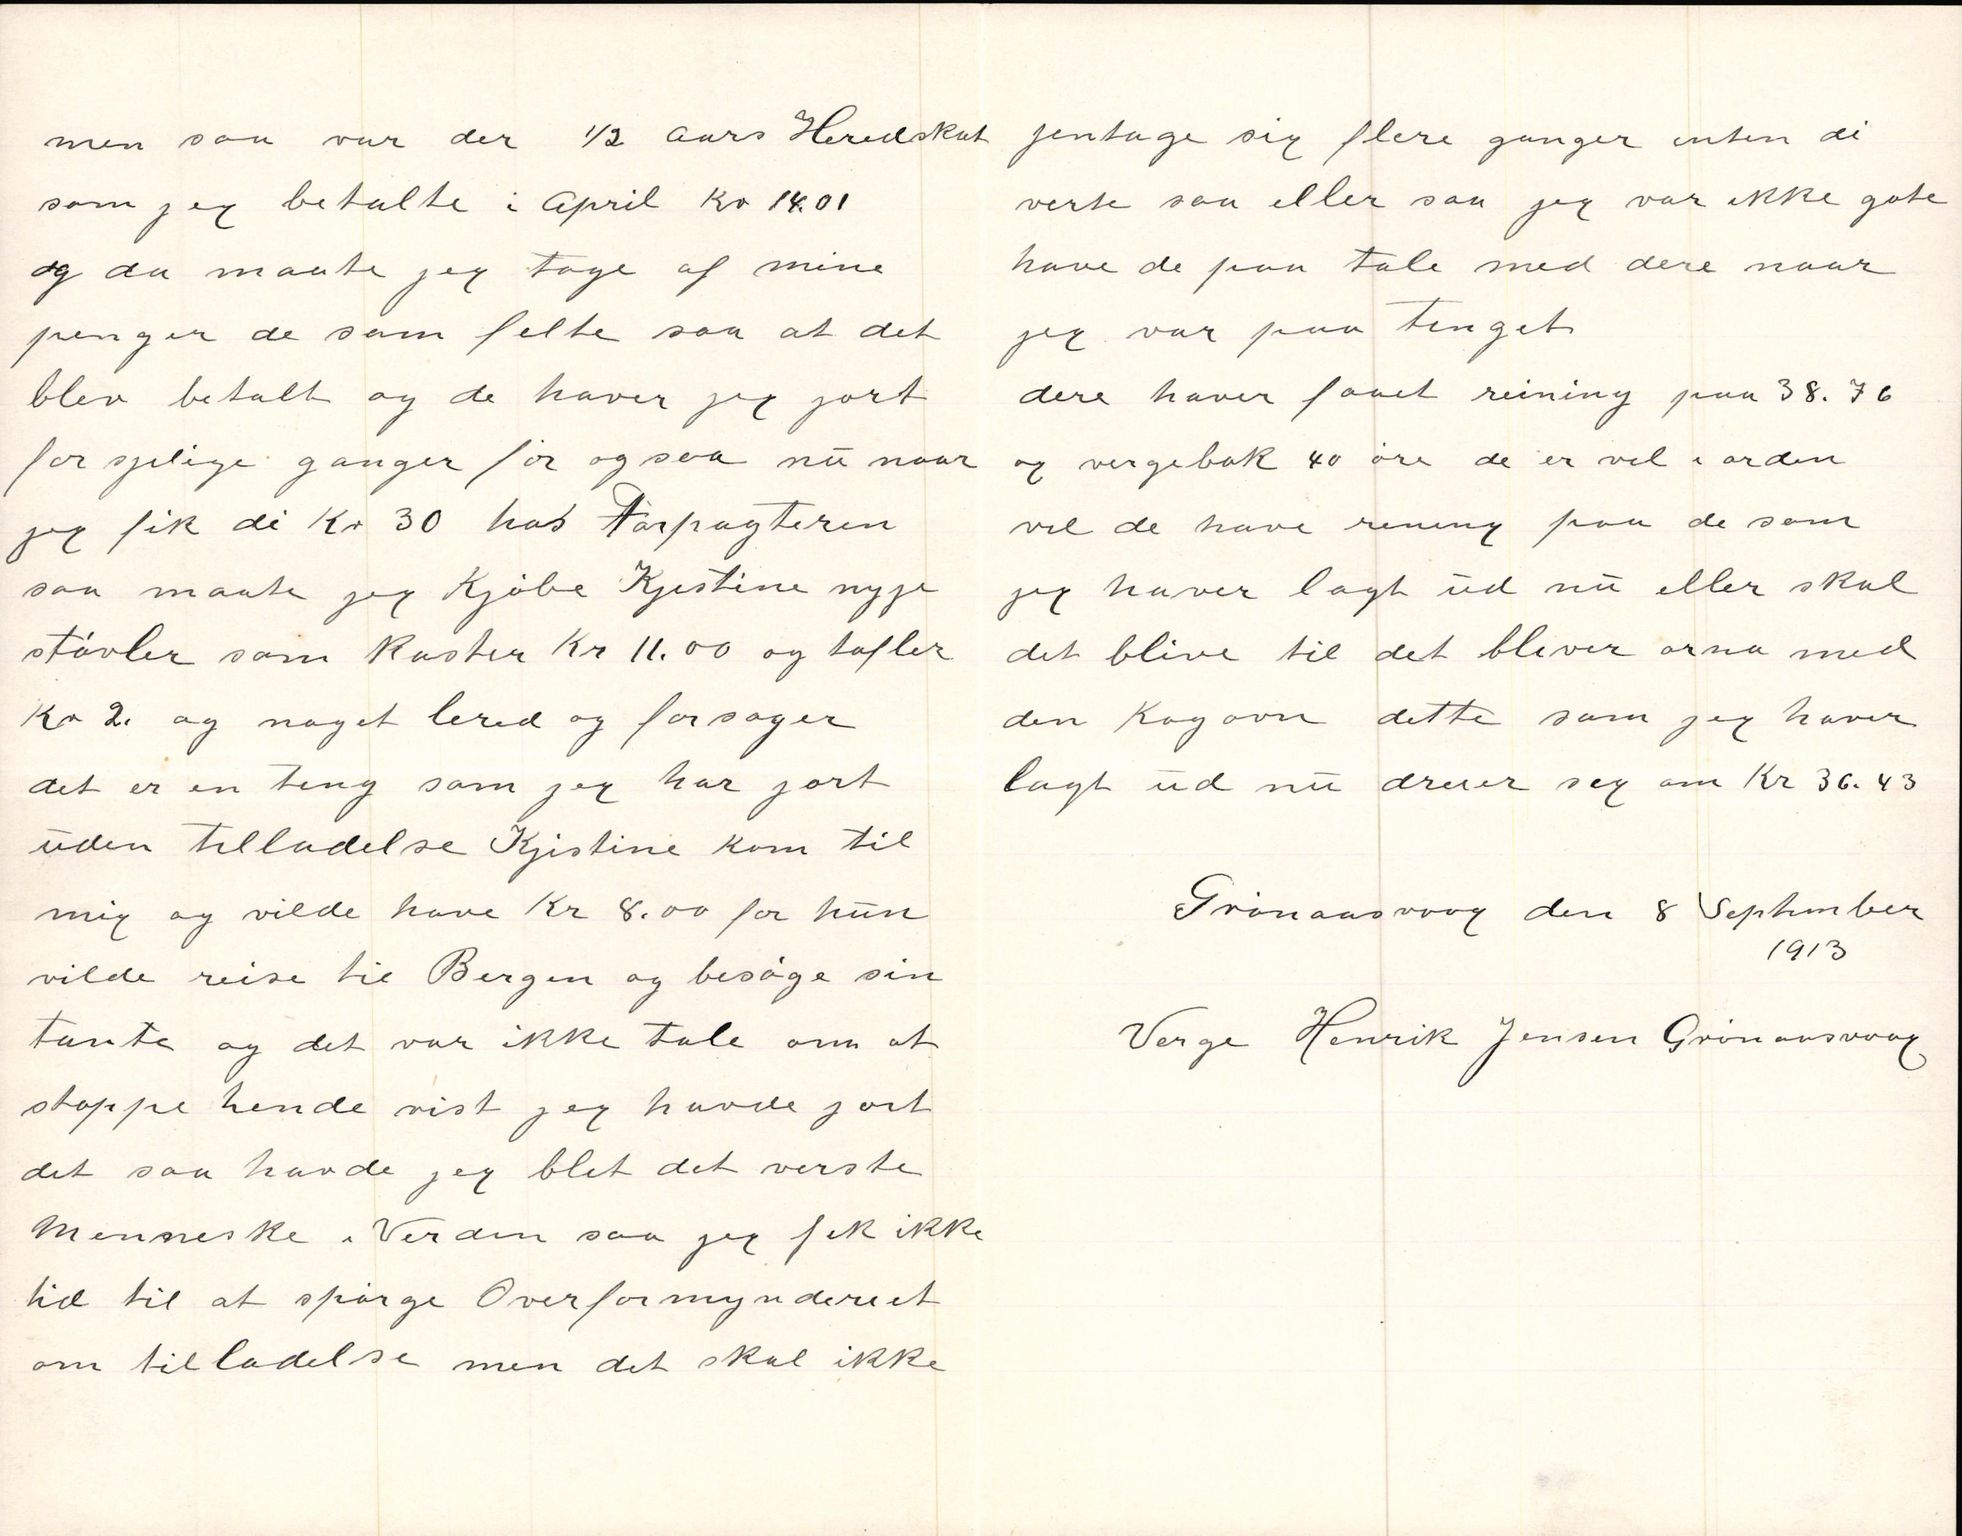 men saa var der 1/2 aars Heredskat
som jeg betalte i April Kr 14.01
og da maate jeg tage af mine
penger de som felte saa at det
blev betalt og de haver jeg jort
forsjelige ganger för ogsaa nu naar
jeg fik di Kr 30 hos Forpagteren
saa maate jeg Kjöbe Kjestine nyje
stövler som Koster Kr 11.00 og tofler
Kr 2. og noget lered og forsoger
det er en teng som jeg har jort
uden tilladelse Kjistine kom til
mig og vilde have Kr 8.00 for hun
vilde reise til Bergen og besöge sin
tante og det var ikke tale om at
stoppe hende vist jeg havde jort
det saa havde jeg blet det verste
Menneske i Verden saa jeg fik ikke
tid til at spörge Overformynderiet
om tilladelse men det skal ikke
jentage sig flere ganger enten di
verte saa eller saa jeg var ikke gote
have de paa tale med dere naar
jeg var paa tenget
dere haver faaet reining paa 38.76
og vergebok 40 öre de er vel i orden
vel de have rening paa de som
jeg haver lagt ud nu eller skal
det blive til det blever orna med
den Kogovn dette som jeg haver
lagt ud nu dreier seg om Kr 36.43
Grönaasvaag den 8 September
1913
Verge Henrik Jensen Grönaasvaag